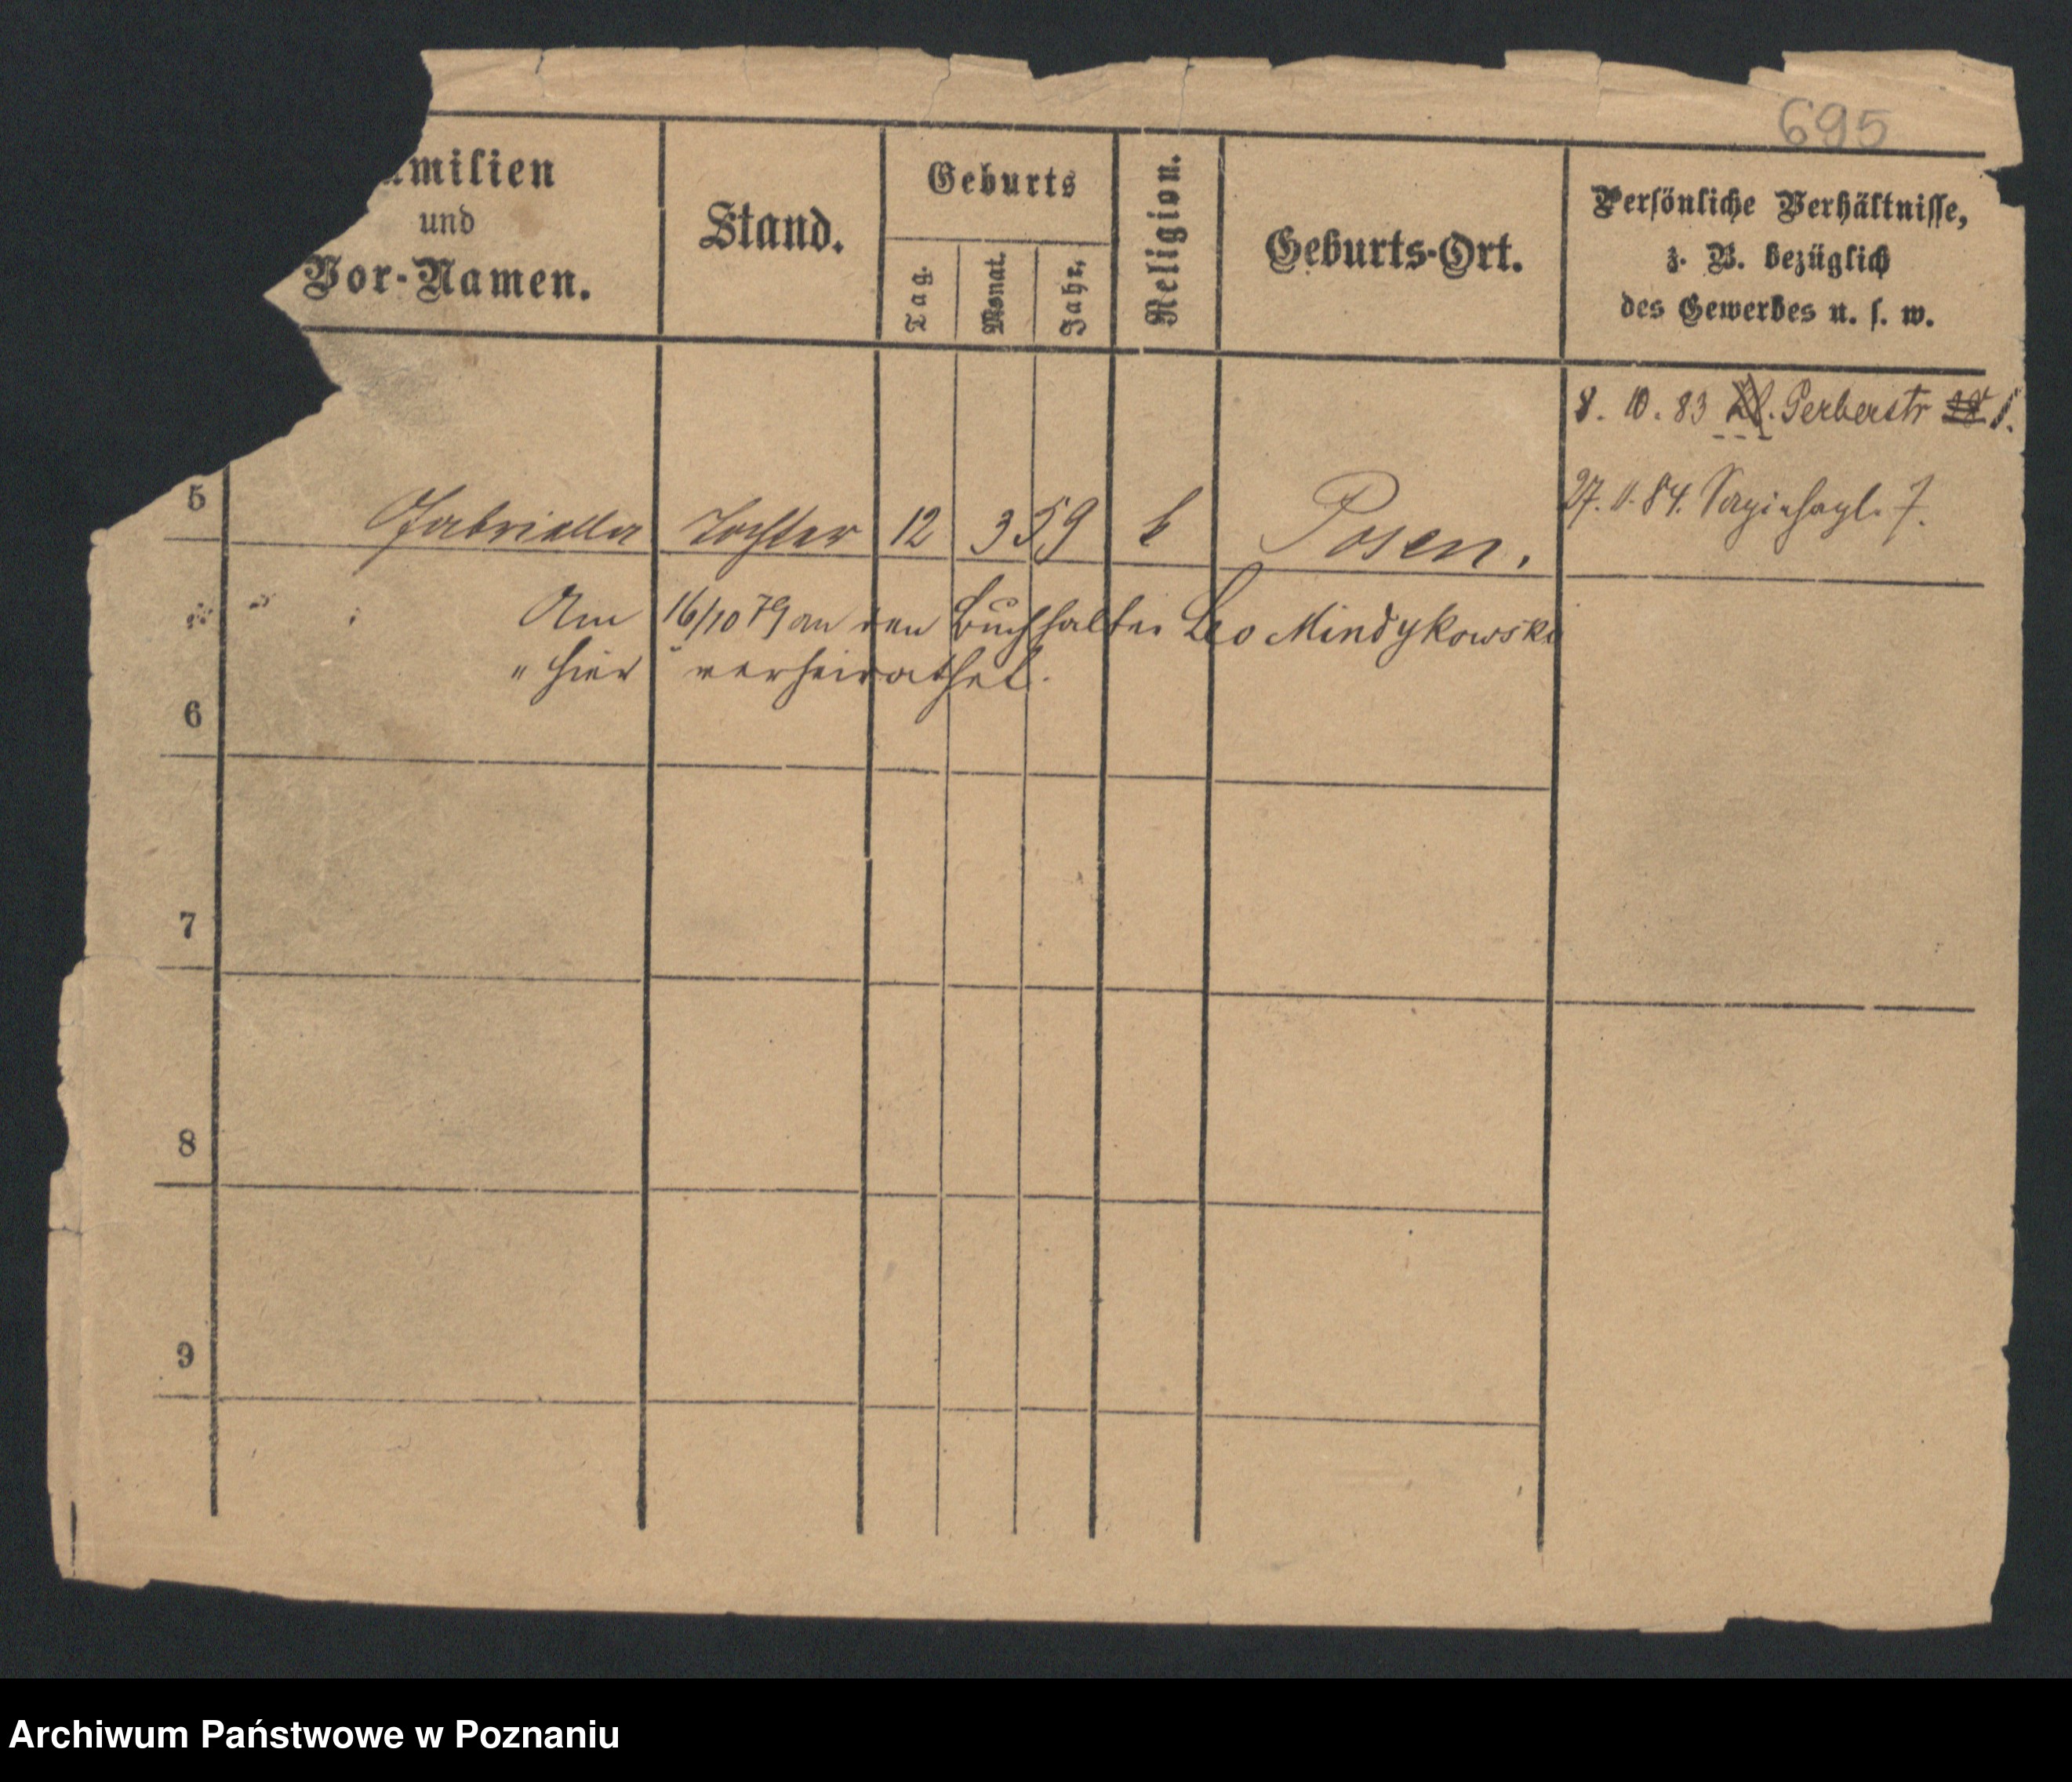 695
milien
und
Vor-Namen.
Stand.
Geburts
Tag.
Monat.
Jahr.
Religion.
Geburts-Ort.
Persönliche Verhältnisse,
z. B. bezüglich
des Gewerbes u. s. w.
8. 10. 83 Gerberstr
27. 11. 84. 7.
5 Gabriella Tochter 12 3 59 k Posen.
Am 16/10 79 an den Buchhalter Leo Mindykowski
" hier verheirathet.
6
7
8
9
Archiwum Państwowe w Poznaniu